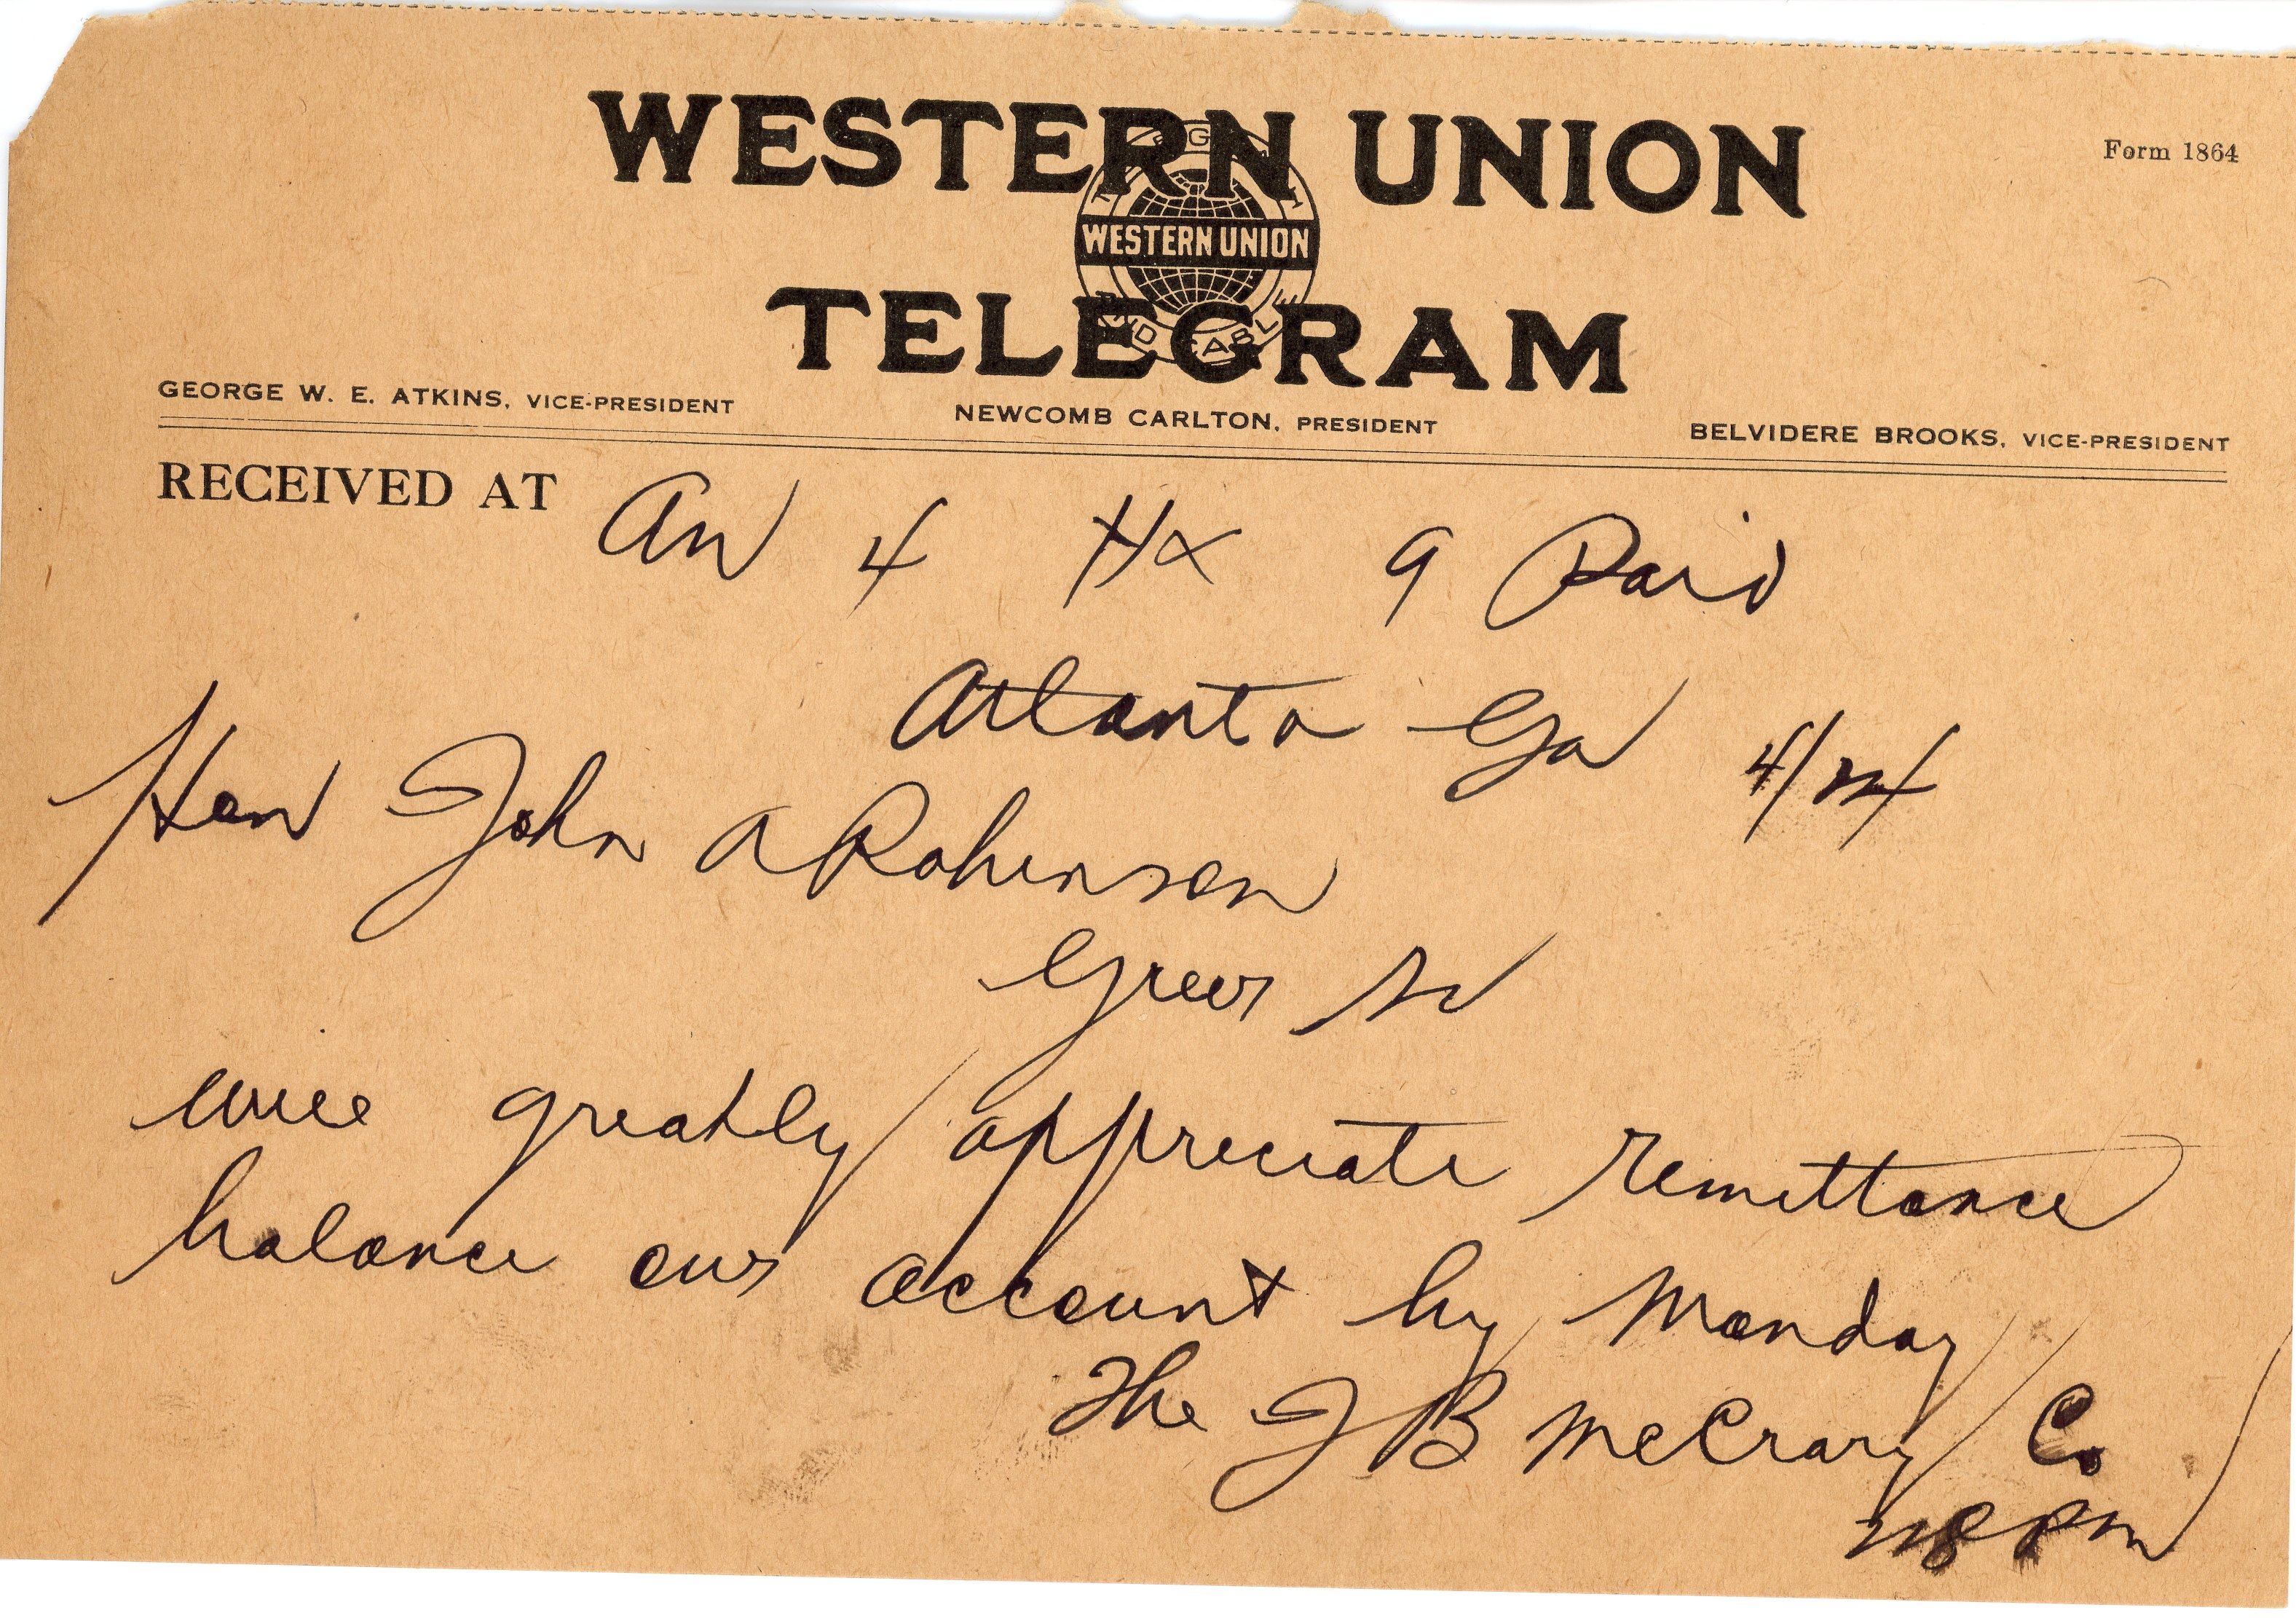 WESTERN UNION
Form 1864
TELEGRAPH
WESTERN UNION
AND CABLE
TELEGRAM
GEORGE W. E. ATKINS, VICE-PRESIDENT NEWCOMB CARLTON, PRESIDENT BELVIDERE BROOKS, VICE-PRESIDENT
RECEIVED AT AW 4 HX 9 Paid
Atlanta Ga 4/24
Hon John A Robinson
Greer SC
will greatly appreciate remittance
balance our account by Monday
The J B McCrary Co
PM